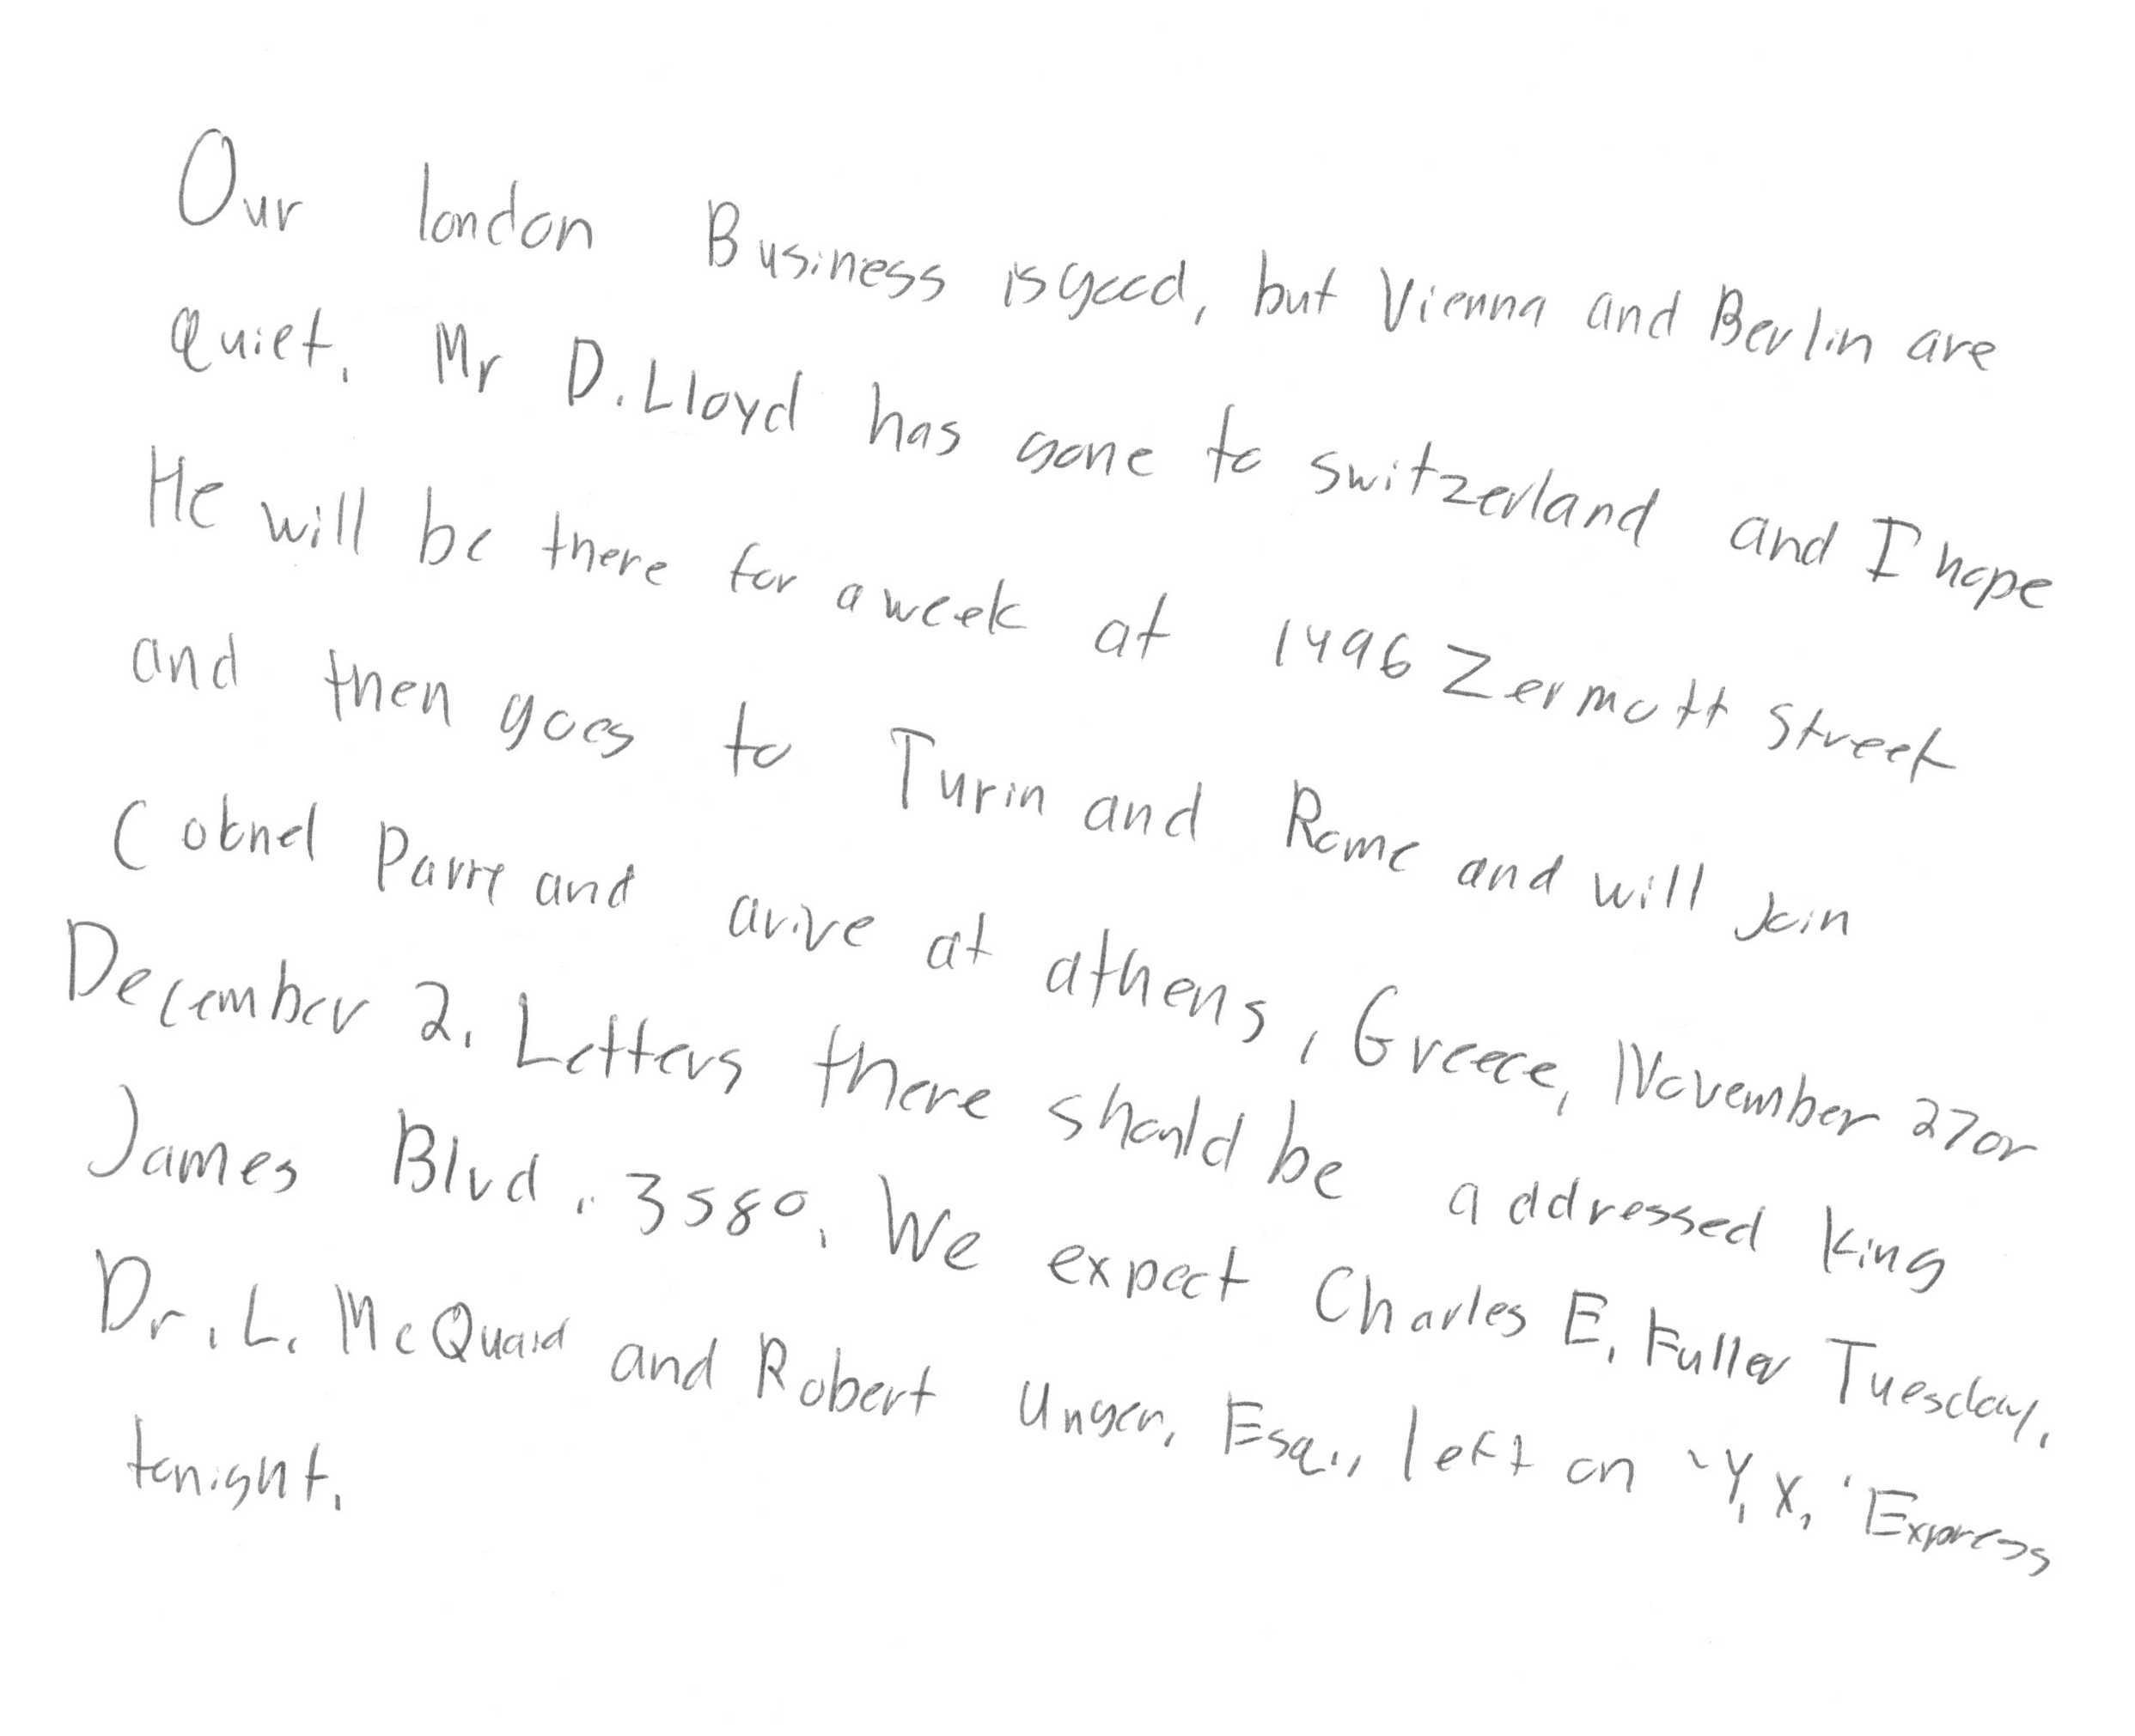 Our london Business is good, but Vienna and Berlin are
quiet. Mr D. Lloyd has gone to switzerland and I hope
He will be there for a week at 1496 Zermott street
and then goes to Turin and Rome and will join
Colonel Parry and arive at athens, Greece, November 27 or
December 2. Letters there should be addressed King
James Blvd. 3580. We expect Charles E. Fuller Tuesday.
Dr. L. McQuaid and Robert Unger, Esq., left on 'Y.X.' Express
tonight.